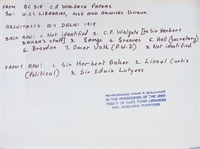 FROM BC 318 C.P. WALGATE PAPERS
TO: U.C.T LIBRARIES, MSS AND ARCHIVES DIVISION
ARCHITECTS AT DELHI 1919
BACK ROW: 1 Not identified 2 C.P. Walgate [Sir Herbert
Baker's staff] 3 4 Greaves 5 Hall (Secretary)
6 7 Omer Voth (P.W.D) 8 Not identified
FRONT ROW: 1 Sir Herbert Baker 2 Lionel Curtis
(Political) 3 Sir Edwin Lutyens
REPRODUCED FROM A DOCUMENT
IN THE POSSESSION OF THE UNIVERSITY
OF CAPE TOWN LIBRARIES
FOR RESEARCH PURPOSES